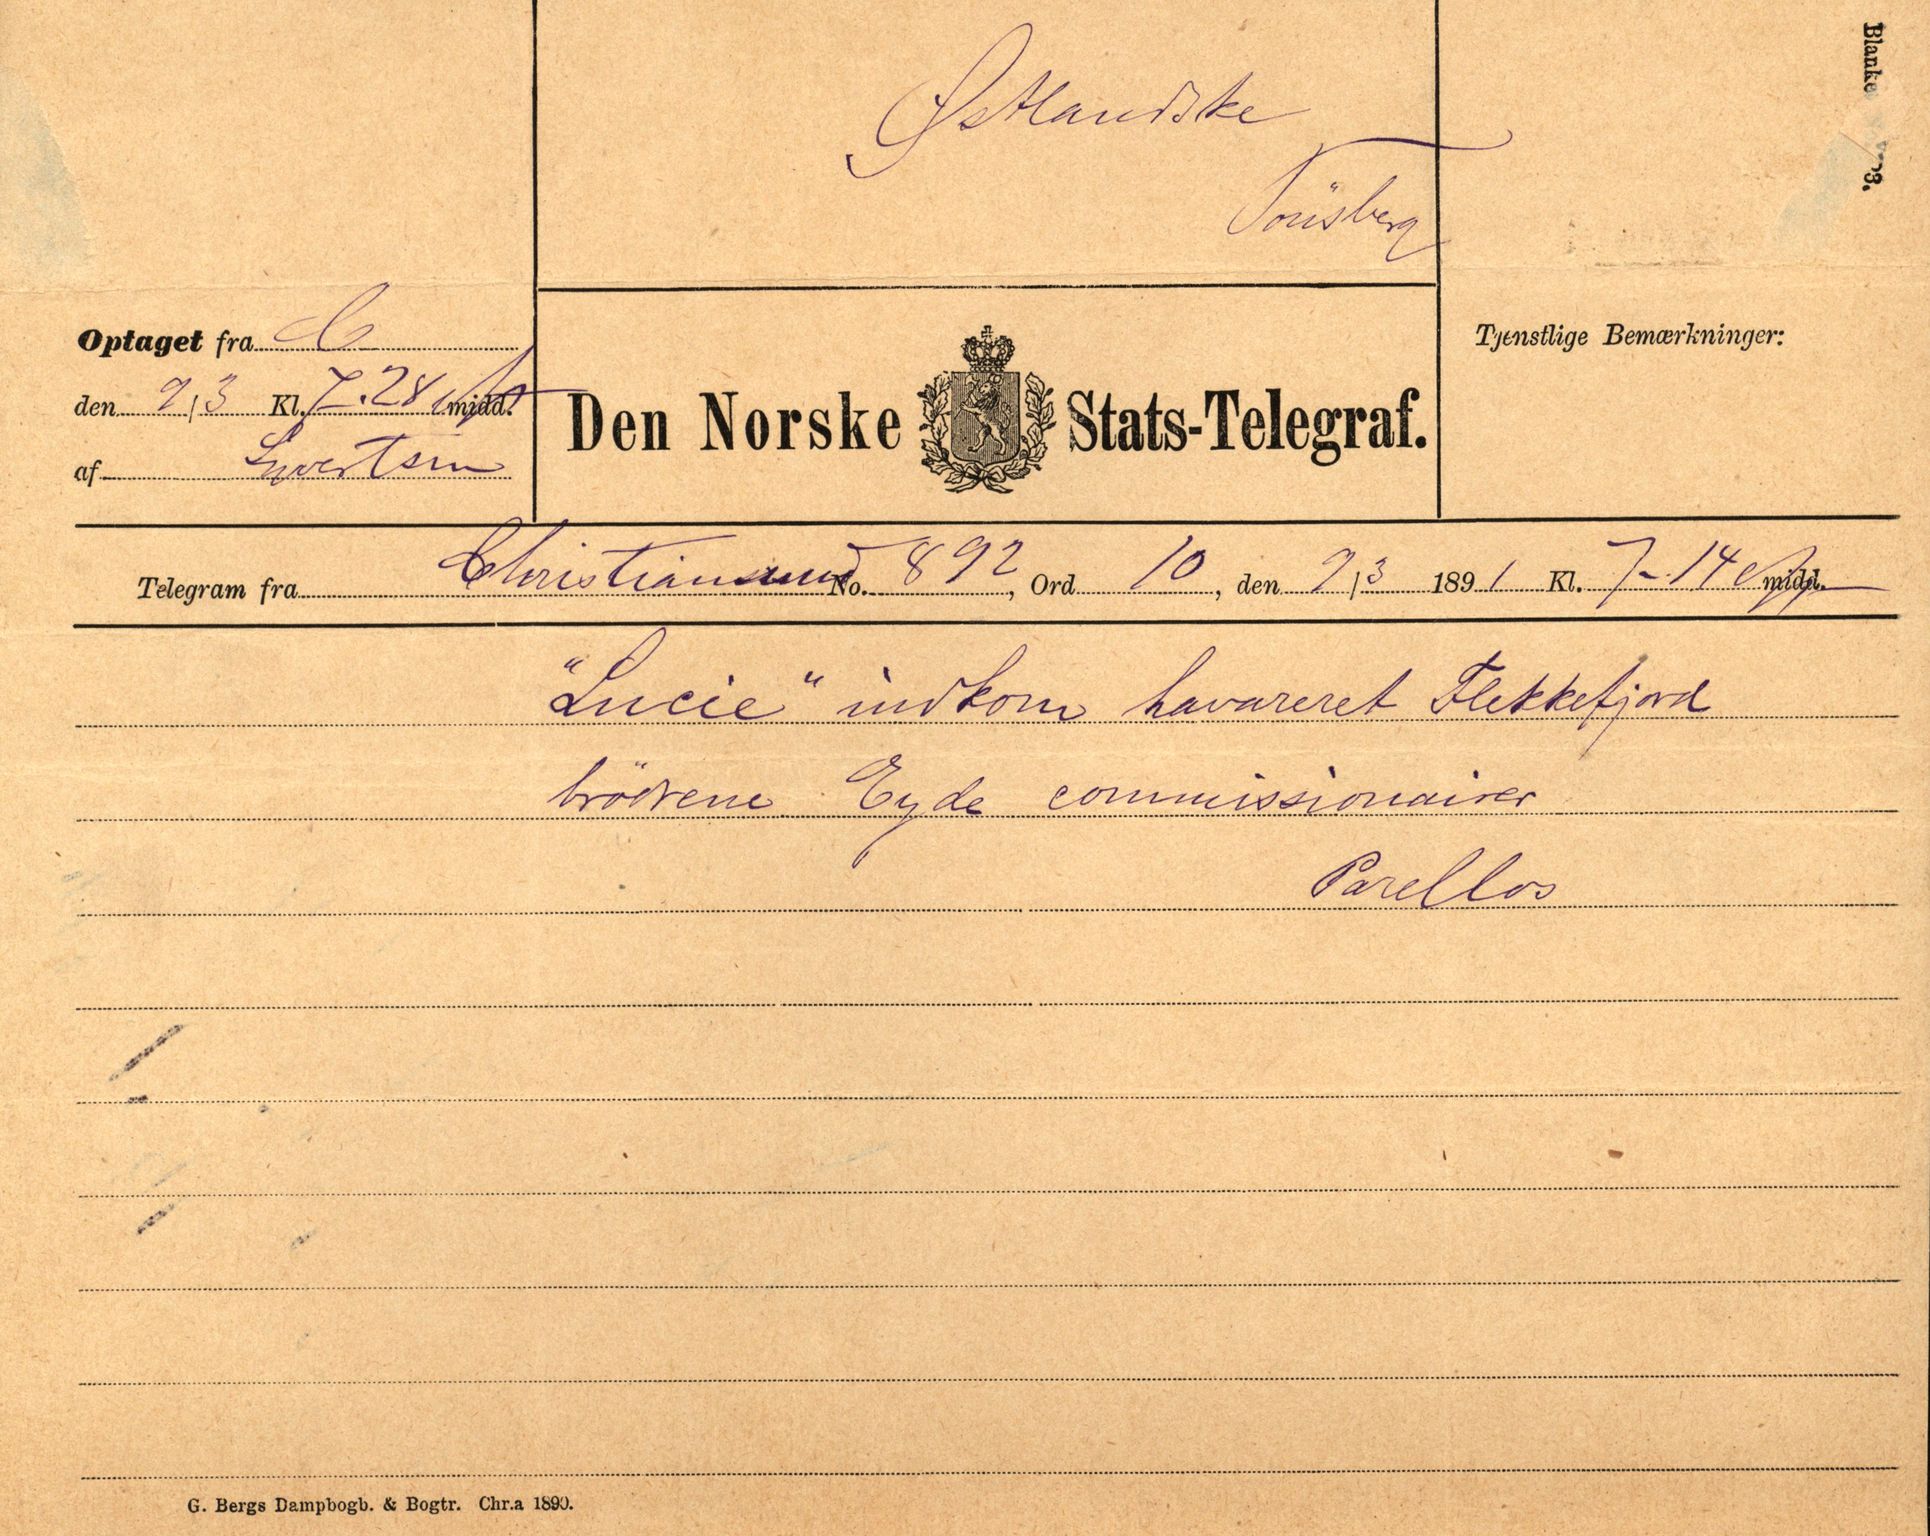 Blanke
Østlandske
Tönsberg
Optaget fra C
den 9/3 Kl. 7.28 midd.
af Syvertsen
Den Norske Stats-Telegraf.
Tjenstlige Bemærkninger:
Telegram fra Christiansund No. 892, Ord 10, den 9/3 1891 Kl. 7.14 midd.
"Lucie" indkom havareret Flekkefjord
brödrene Eyde commissionairer
Parellos
G. Bergs Dampbogb. & Bogtr. Chr.a 1890.